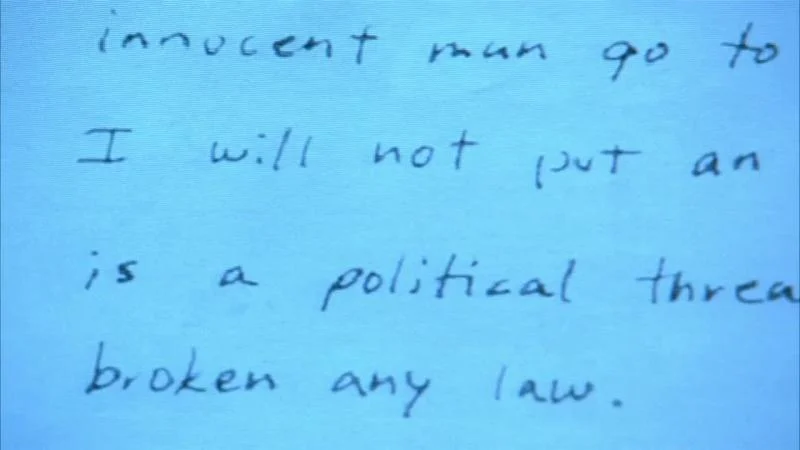 innocent man go to
I will not put an
is a political threa
broken any law.